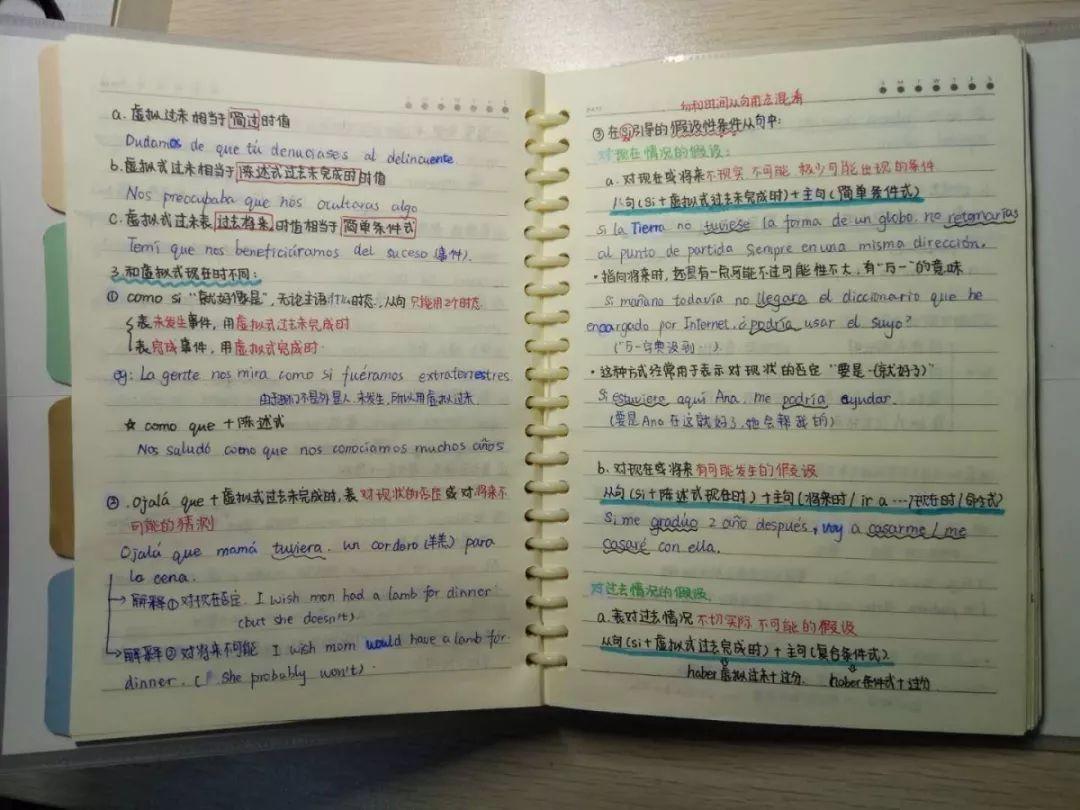 a. 虚拟过未相当于简过时值
Dudamos de que tú denunciases al delincuente
b. 虚拟式过未相当于陈述式过去未完成时时值
Nos preocupaba que nos ocultaras algo
C. 虚拟式过未表过去将来时值相当于简单条件式
Temí que nos beneficiáramos del suceso (事件).
3. 和虚拟式现在时不同:
① como si “就好像是”, 无论主语什么时态, 从句只能用2个时态
表未发生事件, 用虚拟式过去未完成时
表完成事件, 用虚拟式完成时.
eg: La gente nos mira como si fuéramos extraterrestres.
由于我们不是外星人, 未发生, 所以用虚拟过未.
☆ como que + 陈述式
Nos saludó como que nos conocíamos muchos años
② . Ojalá que + 虚拟式过去未完成时, 表对现状的否定或对将来不
可能的猜测
Ojalá que mamá tuviera un cordero (羊羔) para
la cena.
→ 解释① 对现在否定. I wish mom had a lamb for dinner
(but she doesn't).
→ 解释② 对将来不可能 I wish mom would have a lamb for
dinner. ( she probably won't).
勿和时间从句用法混淆
③ 在si引导的假设性条件从句中:
对现在情况的假设:
a. 对现在或将来不现实 不可能 极少可能出现的条件
从句(Si + 虚拟式过去未完成时) + 主句(简单条件式)
si la Tierra no tuviese la forma de un globo, no retornarías
al punto de partida siempre en una misma dirección.
• 指向将来时, 还是有一点可能不过可能性不大, 有“万一”的意味
Si mañana todavía no llegara el diccionario que he
encargado por Internet, ¿podría usar el suyo?
(万一字典没到…).
• 这种方式经常用于表示对现状的否定 “要是…(就好了)”
Si estuviere aquí Ana, me podría ayudar.
(要是Ana在这就好了, 她会帮我的)
b. 对现在或将来有可能发生的假设
从句(Si + 陈述式现在时) + 主句(将来时 / ir a … 现在时 / 命令式)
Si me gradúo 2 año después, voy a casarme / me
casaré con ella.
对过去情况的假设
a. 表对过去情况 不切实际 不可能的假设
从句(si + 虚拟式过去完成时) + 主句(复合条件式).
haber虚拟过未+过分. haber条件式+过分